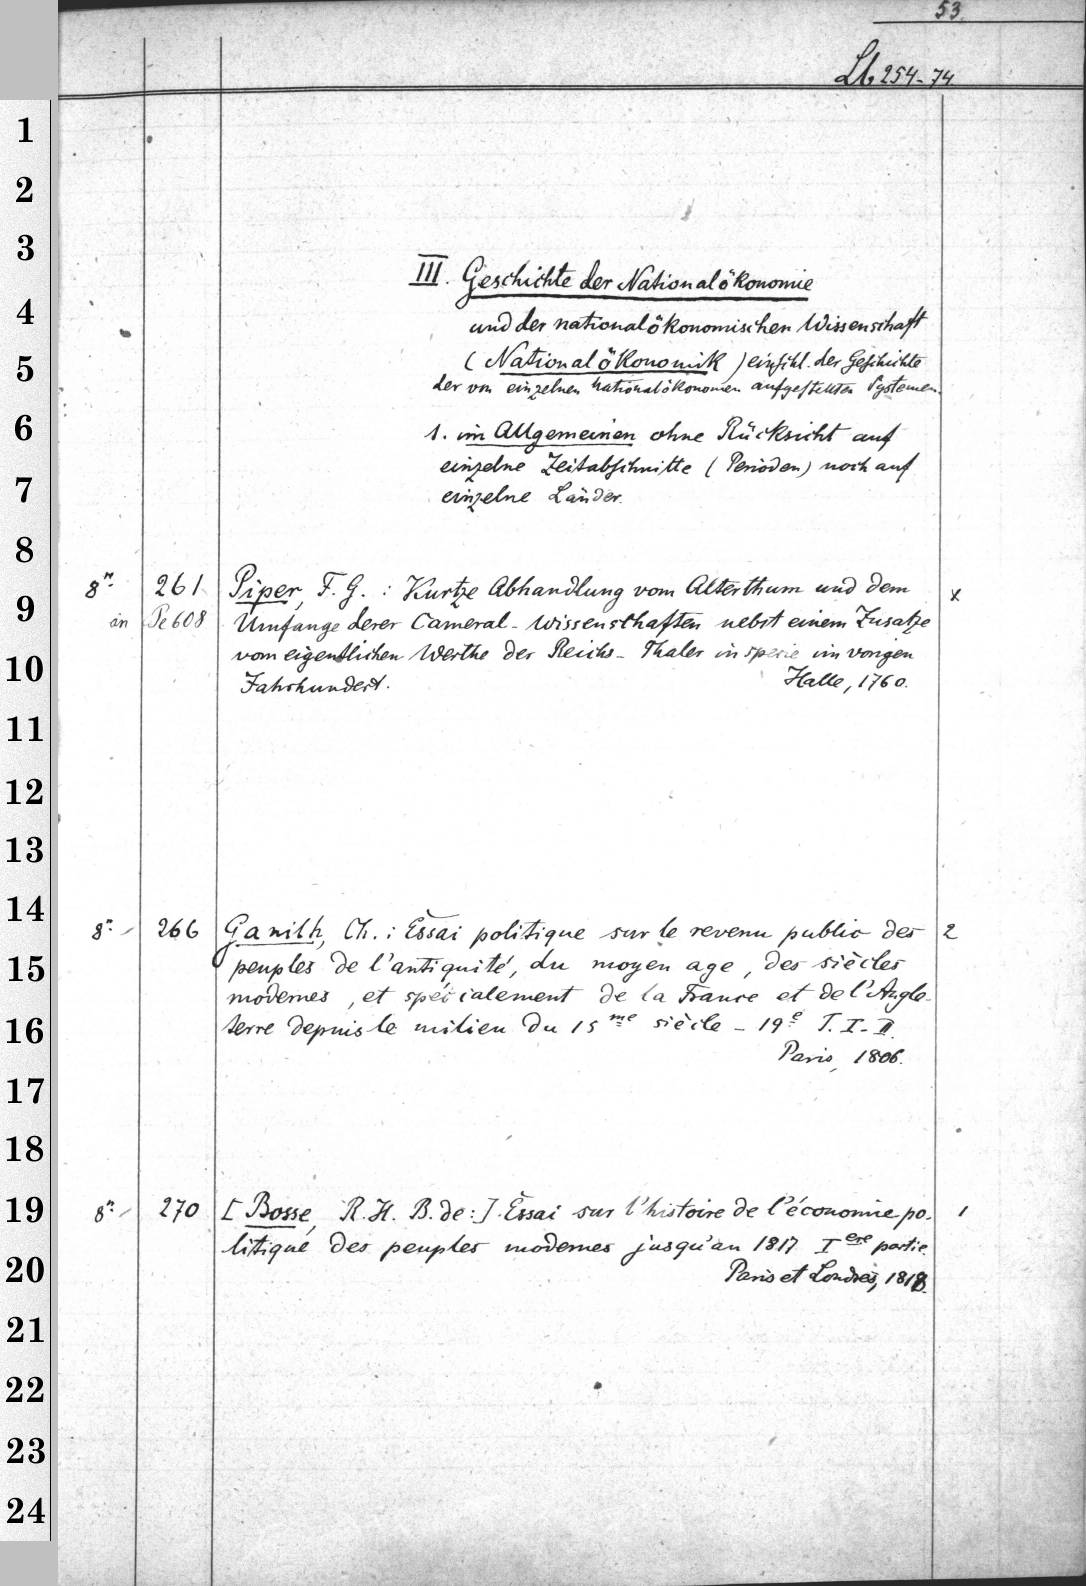 53.
Lb 254-74.
1
2
3
III. Geschichte der Nationalökonomie
4
und der nationalökonomischen Wissenschaft
5
(Nationalökonomik) einschl. der Geschichte
der von einzelnen Nationalökonomen aufgestellten Systemen.
6
1. im Allgemeinen ohne Rücksicht auf
einzelne Zeitabschnitte (Perioden) noch auf
7
einzelne Länder.
8
8º. 261 Piper, F. G. : Kurtze Abhandlung vom Alterthum und dem x
9
an Pe 608 Umfange derer Cameral-Wissenschaften nebst einem Zusatze
10
vom eigentlichen Werthe der Reichs-Thaler in specie im vorigen
Jahrhundert. Halle, 1760.
11
12
13
14
8º. 266 Ganilh, Ch. : Essai politique sur le revenu public des 2
15
peuples de l'antiquité, du moyen age, des siècles
modernes, et spécialement de la France et de l'Angle-
16
terre depuis le milieu du 15me siècle - 19e T. I-II.
Paris, 1806.
17
18
19
8º. 270 [Bosse, R. H. B. de:] Essai sur l'histoire de l'économie po- 1
litique des peuples modernes jusqu'au 1817 Iere partie.
20
Paris et Londres, 1818.
21
22
23
24